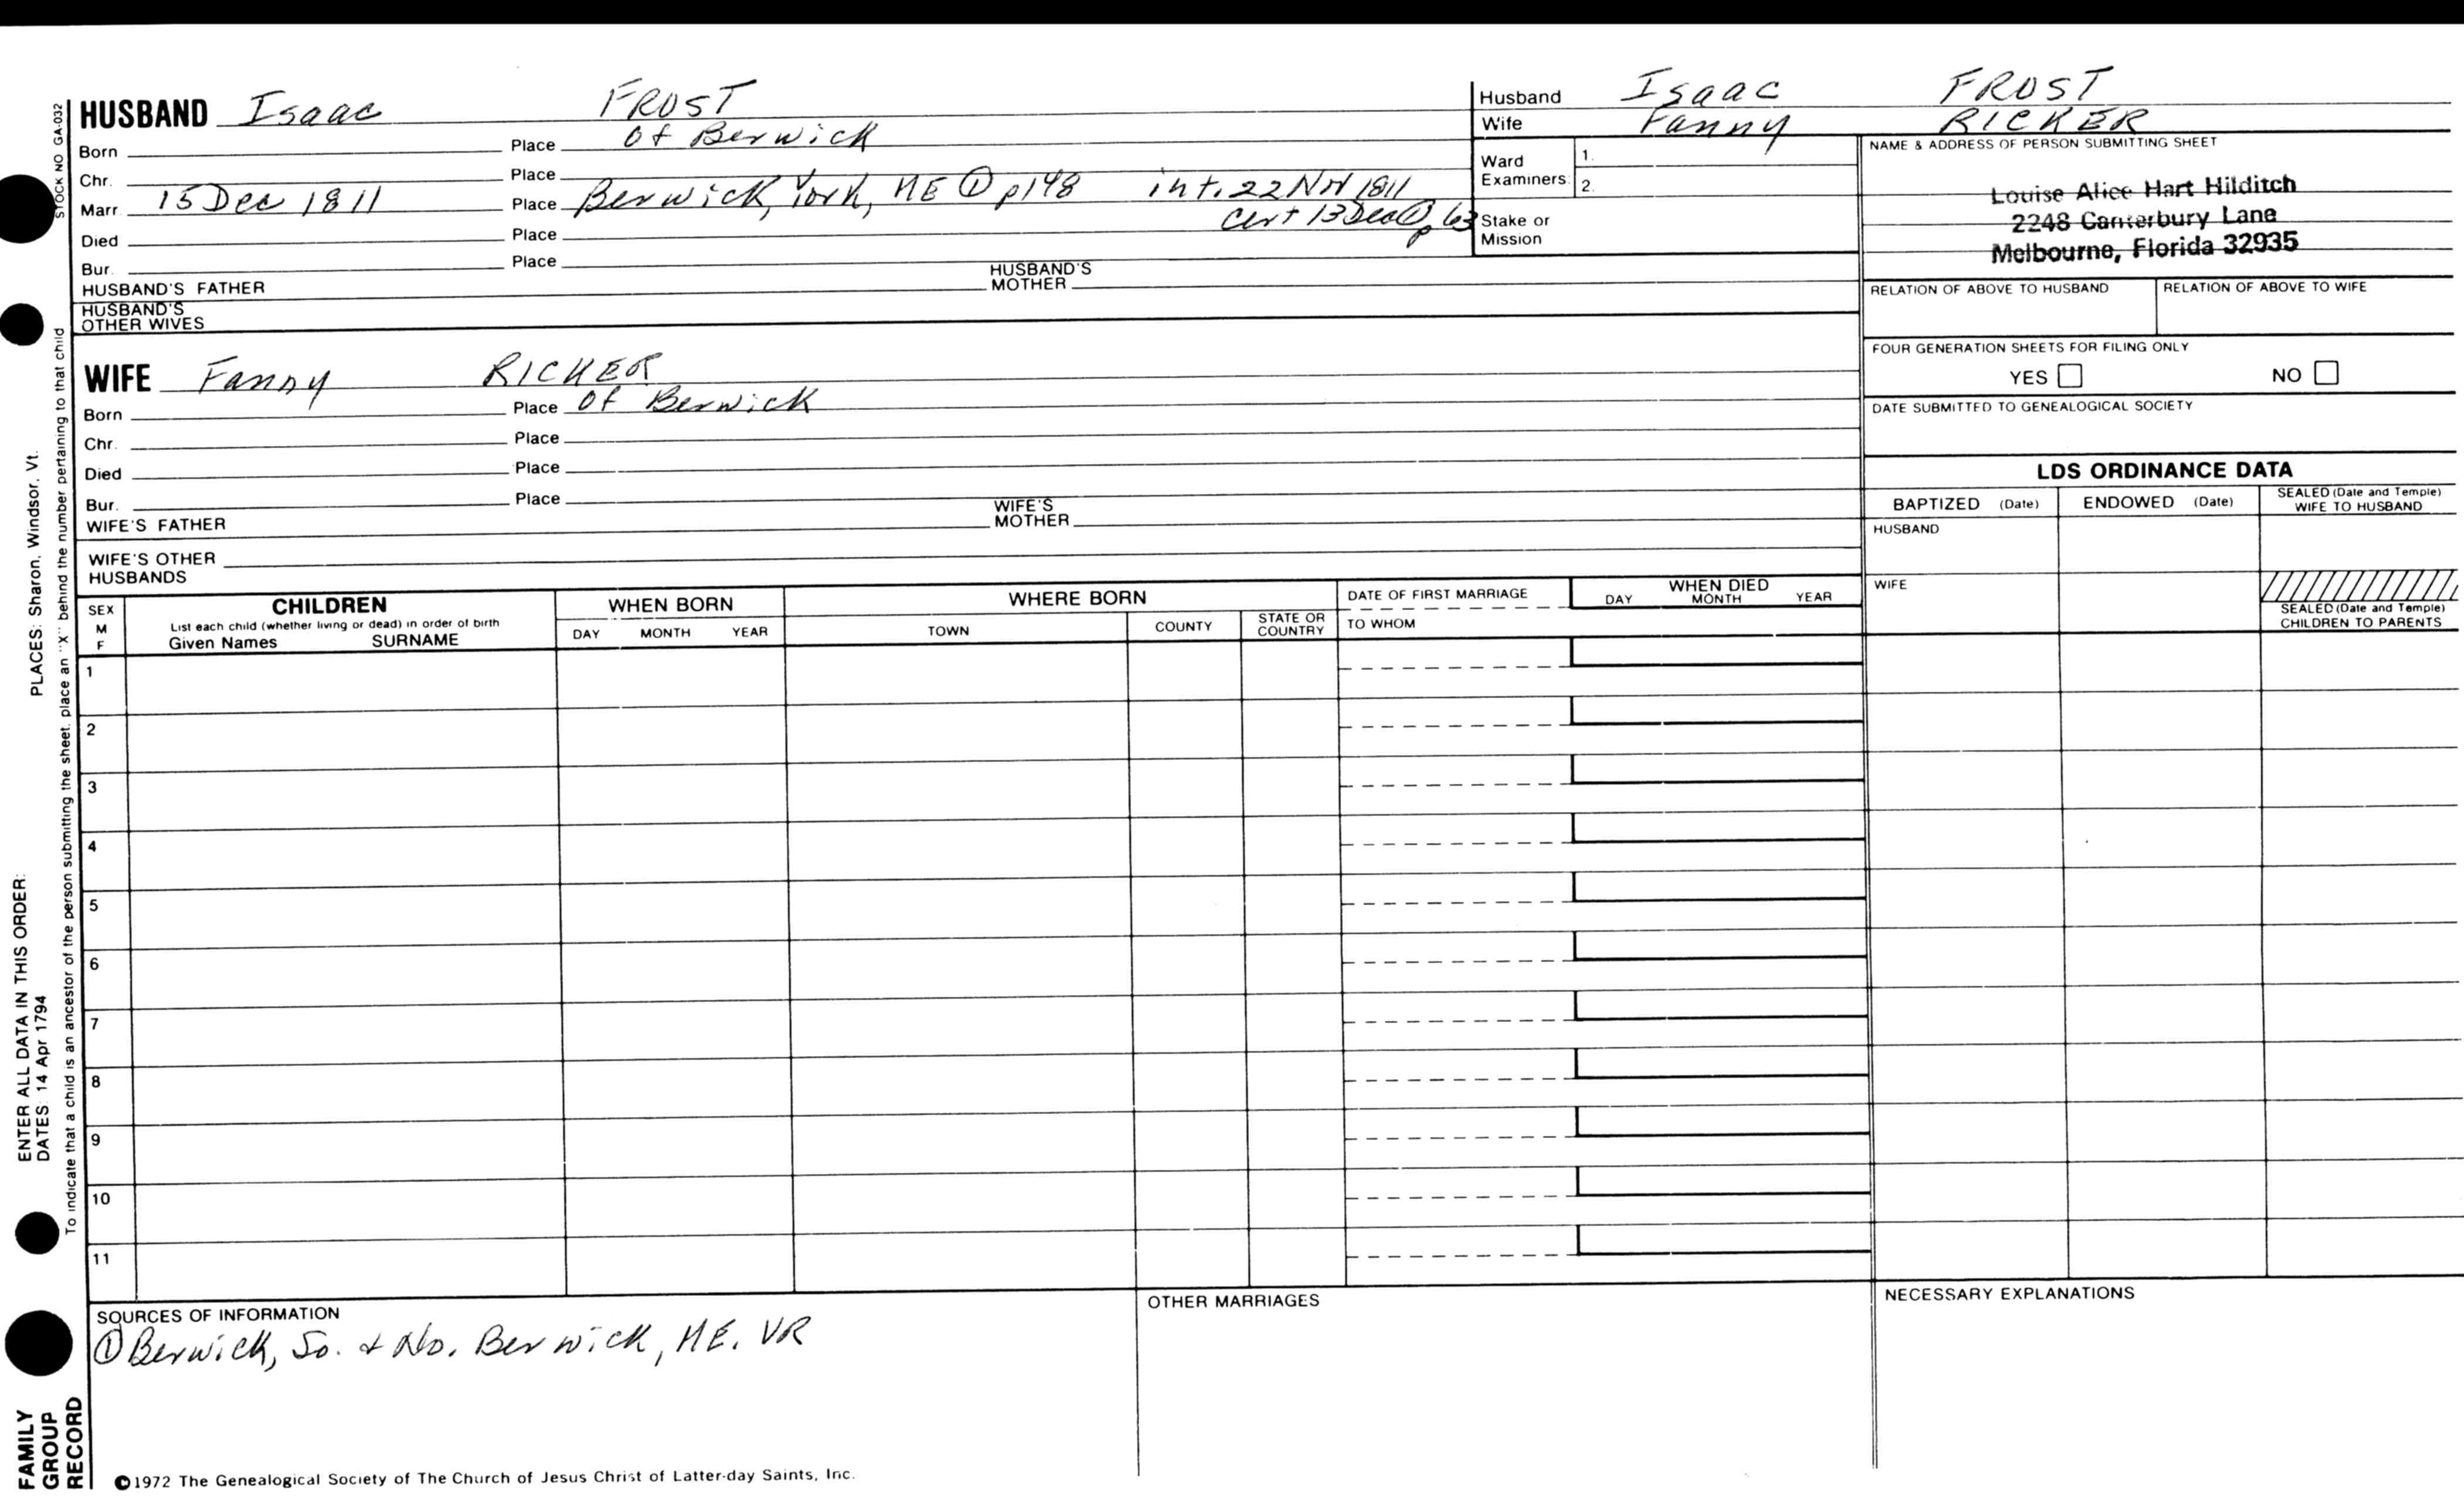 HUSBAND Isaac FROST
Born Place of Berwick
Chr. Place
Marr. 15 Dec 1811 Place Berwick, York, ME ① p148 int. 22 Nov 1811
cert 13 Dec ① p 63
Died Place
Bur. Place
HUSBAND'S FATHER HUSBAND'S MOTHER
HUSBAND'S OTHER WIVES
Husband Isaac FROST
Wife Fanny RICKER
Ward Examiners: 1. 2.
Stake or Mission
NAME & ADDRESS OF PERSON SUBMITTING SHEET
Louise Alice Hart Hilditch
2248 Canterbury Lane
Melbourne, Florida 32935
RELATION OF ABOVE TO HUSBAND RELATION OF ABOVE TO WIFE
FOUR GENERATION SHEETS FOR FILING ONLY
YES NO
DATE SUBMITTED TO GENEALOGICAL SOCIETY
WIFE Fanny RICKER
Born Place Of Berwick
Chr. Place
Died Place
Bur. Place
WIFE'S FATHER WIFE'S MOTHER
WIFE'S OTHER HUSBANDS
LDS ORDINANCE DATA
BAPTIZED (Date) ENDOWED (Date) SEALED (Date and Temple) WIFE TO HUSBAND
HUSBAND
WIFE
SEALED (Date and Temple) CHILDREN TO PARENTS
SEX M F
CHILDREN
List each child (whether living or dead) in order of birth
Given Names SURNAME
WHEN BORN
DAY MONTH YEAR
WHERE BORN
TOWN COUNTY STATE OR COUNTRY
DATE OF FIRST MARRIAGE
TO WHOM
WHEN DIED
DAY MONTH YEAR
1
2
3
4
5
6
7
8
9
10
11
SOURCES OF INFORMATION
① Berwick, So. & No. Berwick, ME. VR
OTHER MARRIAGES
NECESSARY EXPLANATIONS
©1972 The Genealogical Society of The Church of Jesus Christ of Latter-day Saints, Inc.
STOCK NO GA-032
To indicate that a child is an ancestor of the person submitting the sheet, place an "X" behind the number pertaining to that child
ENTER ALL DATA IN THIS ORDER:
DATES: 14 Apr 1794
PLACES: Sharon, Windsor, Vt.
FAMILY
GROUP
RECORD